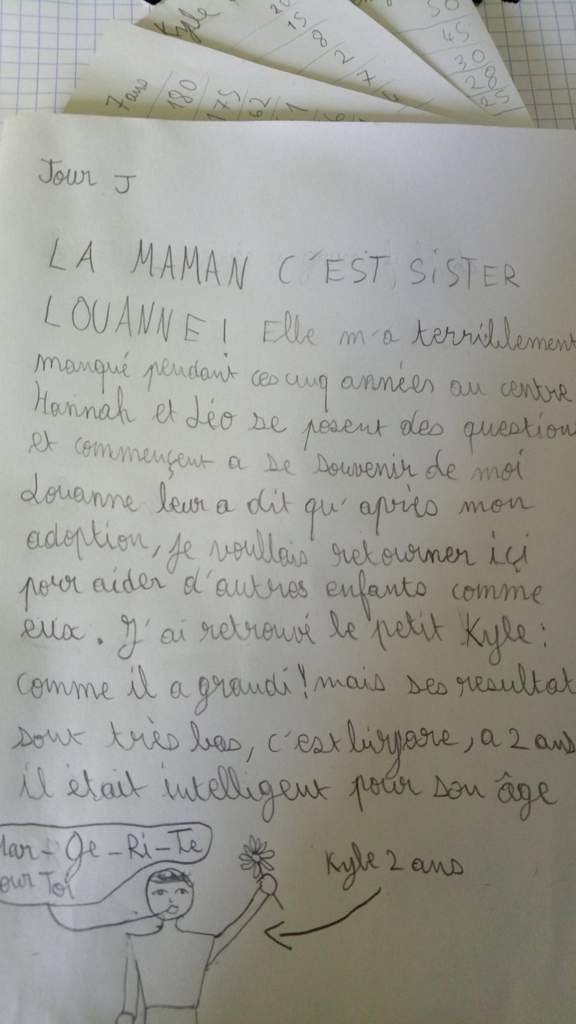 Kyle
20
15
8
2
7
50
45
30
28
25
7 ans
180
175
62
1
Jour J
LA MAMAN C'EST SISTER
LOUANNE ! Elle m'a terriblement
manqué pendant ces cinq années au centre
Hannah et Léo se posent des question
et commençent a se souvenir de moi
Louanne leur a dit qu'après mon
adoption, je voullais retourner içi
pour aider d'autres enfants comme
eux. J'ai retrouvé le petit Kyle :
comme il a grandi ! mais ses resultat
sont très bas, c'est bizare, a 2 ans
il était intelligent pour son âge
Mar-Ge-Ri-Te
Pour Toi
Kyle 2 ans